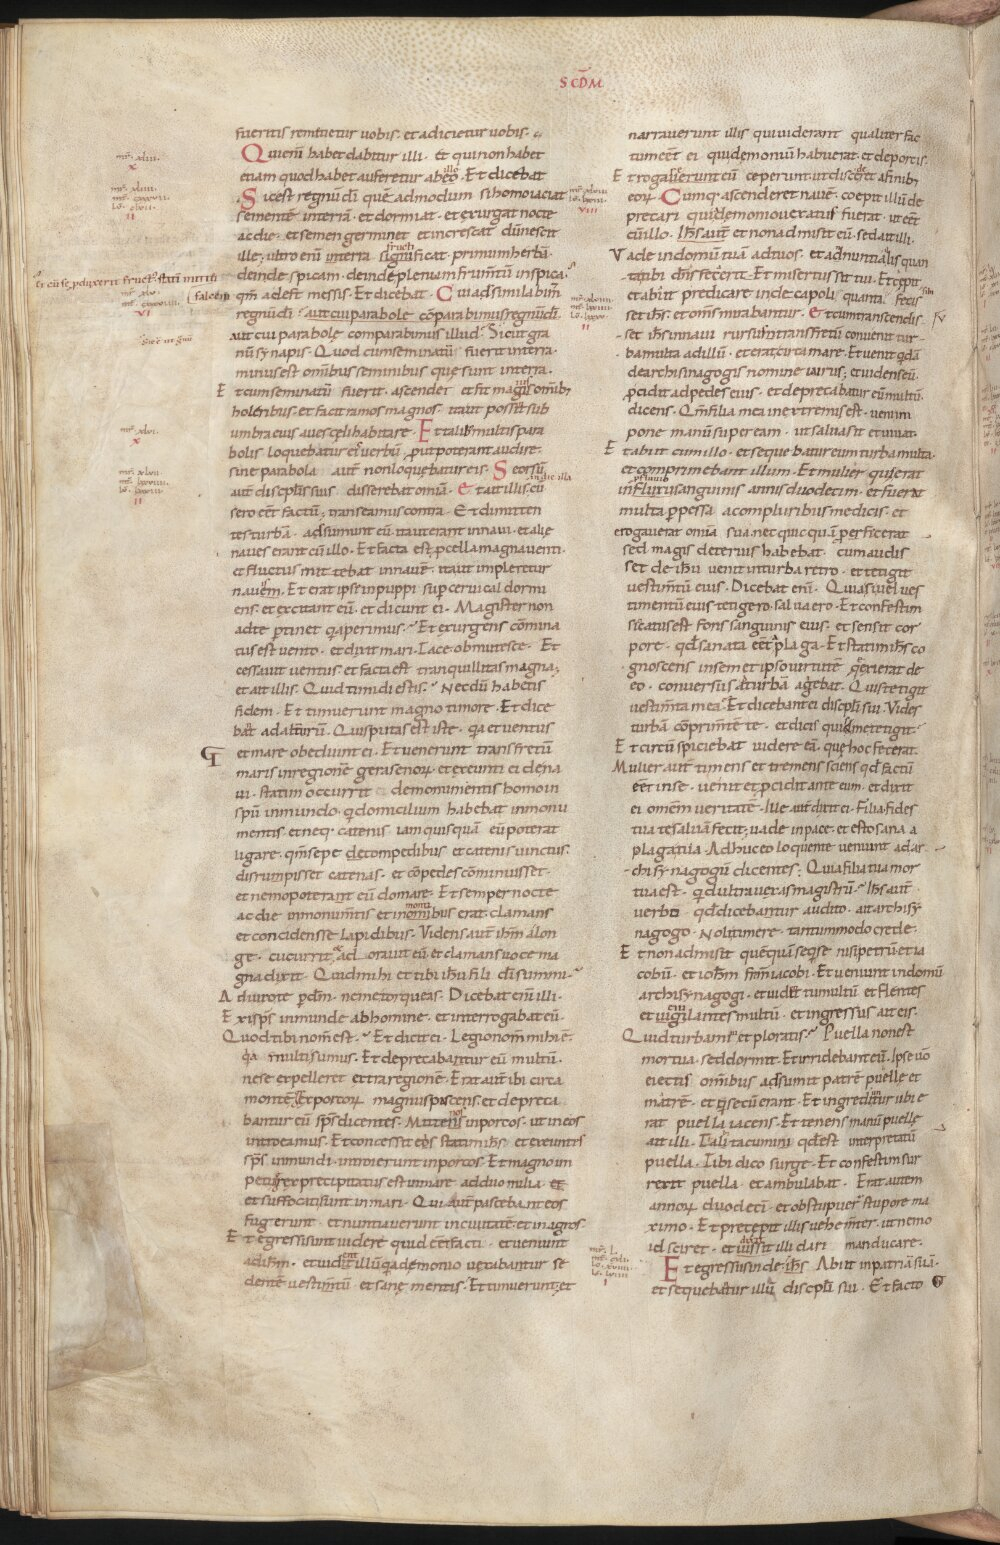 SCDM
fueritis remetietur uobis· et adicietur uobis·
Qui enī habet dabitur illi· et qui non habet
etiam quod habet auferetur ab eo· Et dicebat
Sic est regnū dī quē admodum si homo iaciat
sementē in terrā· et dormiat· et exurgat nocte
ac die· et semen germinet et increscat dū nescit
ille· ultro enī terra fructificat primum herbā·
deinde spicam· deinde plenum frumtū in spica·
qm̄ adest messis· Et dicebat· Cui adsimilabim̄
regnū dī· aut cui parabole cōparabimus regnū dī·
aut cui parabole comparabimus illud· Sicut gra
nū synapis· Quod cum seminatū fuerit in terra·
minus est omībus seminibus quę sunt in terra·
Et cum seminatū fuerit· ascendet et fit magis omībꝫ
holeribus· et facit ramos magnos· ita ut possint sub
umbra eius aues cęli habitare· Et talibꝫ multis para
bolis loquebatur eis uerbū· prout poterant audire·
sine parabola autē non loquebatur eis· Seorsū
autē discipulis suis disserebat omia· et ait illis· cū
sero eēt factū· transeamus contra· Et dimitten
tes turbā· adsumunt eū ita ut erant in naui· et alię
naues erant cū illo· Et facta est procella magna uenti·
et fluctus mittebat in nauē· ita ut impleretur
nauem· Et erat ipse in puppi super ceruical dormi
ens· et excitant eū· et dicunt ei· Magister non
ad te pertinet qa perimus· Et exurgens cōmina
tus est uento· et dixit mari· Tace obmutesce· Et
cessauit uentus· et facta est tranquillitas magna·
et ait illis· Quid timidi estis· Necdū habetis
fidem· Et timuerunt magno timore· Et dice
bāt ad alterutrū· Quis putas est iste· qa et uentus
et mare obediunt ei· Et uenerunt trans fretū
maris in regionē gerasenoꝝ· et exeunti ei de na
ui· statim occurrit de monumentis homo in
spū inmundo· qi domicilium habebat in monu
mentis· et neqꝫ catenis iam quisquā eū poterat
ligare· qm̄ sepe de compedibus et catenis uinctus·
disrupisset catenas· et cōpedes cōminuisset·
et nemo poterat eū domare· Et semper nocte
ac die in monumtis et in montibus erat· clamans
et concidens se lapidibus· Videns autē ihm a lon
ge· cucurrit et adorauit eū et clamans uoce ma
gna dixit· Quid mihi et tibi ihū fili dī summi·
Adiuro te per dm· ne me torqueas· Dicebat enī illi·
Exi sps inmunde ab homine· et interrogabat eū·
Quod tibi nom̄ est· Et dicit ei· Legio nom̄ mihi ē·
qa multi sumus· Et deprecabantur eū multū·
ne se expelleret extra regionē· Erat autē ibi circa
montē grex porcoꝝ magnus pascens· et depreca
bantur eū sps dicentes· Mitte nos in porcos· ut in eos
introeamus· Et concessit eis statim ihs· et exeuntes
sps inmundi· introierunt in porcos· Et magno im
petu grex precipitatus est in mare ad duo milia· et
et suffocati sunt in mari· Qui autē pascebant eos
fugerunt· et nuntiauerunt in ciuitatē· et in agros·
Et egressi sunt uidere quid eēt facti· et ueniunt
ad ihm· et uident illū qi a demonio uexabatur se
dentē uestimtū et sanę mentis· Et timuerunt· et
narrauerunt illis qui uiderant qualiter fac
tum eēt ei qui demoniū habuerat· et de porcis·
Et rogare cęperunt eū ut discederet a finibꝫ
eoꝝ· Cumqꝫ ascenderet nauē· coepit illū de
precari qui demonio uexatus fuerat· ut eēt
cū illo· Ihs autē et non admisit eū· sed ait illi·
Vade in domū tuā ad tuos· et adnuntia illis quan
ta tibi dns fecerit· Et misertus sit tui· Et cępit
et abiit predicare in decapoli quanta fecis
set ihs· et oms mirabantur· Et cum transcendis
set ihs in naui rursum trans fretū conuenit tur
ba multa ad illū· et erat circa mare· Et uenit qdā
de archisinagogis nomine iairus· et uidens eū·
procidit ad pedes eius· et deprecabatur eū multū·
dicens· Qm̄ filia mea in extremis est· ueni im
pone manū super eam· ut salua sit et uiuat·
Et abiit cum illo· et sequebatur eum turba multa·
et comprimebant illum· Et mulier quę erat
in profluuio sanguinis annis duodecim· et fuerat
multa perpessa a compluribus medicis· et
erogauerat omia sua· nec quicquā perfecerat·
sed magis deterius habebat· cum audis
set de ihū uenit in turba retro· et tetigit
uestimtū eius· Dicebat enī· Quia si uel ues
timentū eius tetigero salua ero· Et confestim
siccatus est fons sanguinis eius· et sensit cor
pore· qd sanata eēt a plaga· Et statim ihs co
gnoscens in semet ipso uirtutē quę exierat de
eo· conuersus ad turbā agebat· Quis tetigit
uestimta mea· Et dicebant ei discipli sui· Vides
turbā cōprimente te· et dicis quis me tetigit·
Et circū spiciebat uidere eā quę hoc fecerat·
Mulier autē timens et tremens sciens qd factū
eēt in se· uenit et procidit ante eum· et dixit
ei omēm ueritatē· Ille autē dixit ei· Filia fides
tua te saluā fecit· uade in pace· et esto sana a
plaga tua· Adhuc eo loquente ueniunt ad ar
chisynagogū dicentes· Quia filia tua mor
tua est· qid ultra uexas magistrū· Ihs autē
uerbo qd dicebatur audito· ait archisy
nagogo· Noli timere· tantum modo crede·
Et non admisit quēquā sequi se nisi petrū et ia
cobū· et iohm frm̄ iacobi· Et ueniunt in domū
archisynagogi· et uidet tumultū et flentes
et eiulantes multū· et ingressus ait eis·
Quid turbamini et ploratis· Puella non est
mortua· sed dormit· Et irridebant eū· Ipse uō
eiectis omībus adsumit patrē puelle et
matrē· et qi secū erant· Et ingreditur ubi e
rat puella iacens· Et tenens manū puelle
ait illi· Talitacumi· qd est interpretatū
puella· Tibi dico surge· Et confestim sur
rexit puella· et ambulabat· Erat autem
annoꝝ duodecī· et obstupuer̄ stupore ma
ximo· Et precepit illis uehemter· ut nemo
id sciret· et iussit illi dari manducare·
Et egressus inde ihs Abiit in patriā suā·
et sequebātur illū discipli sui· Et facto